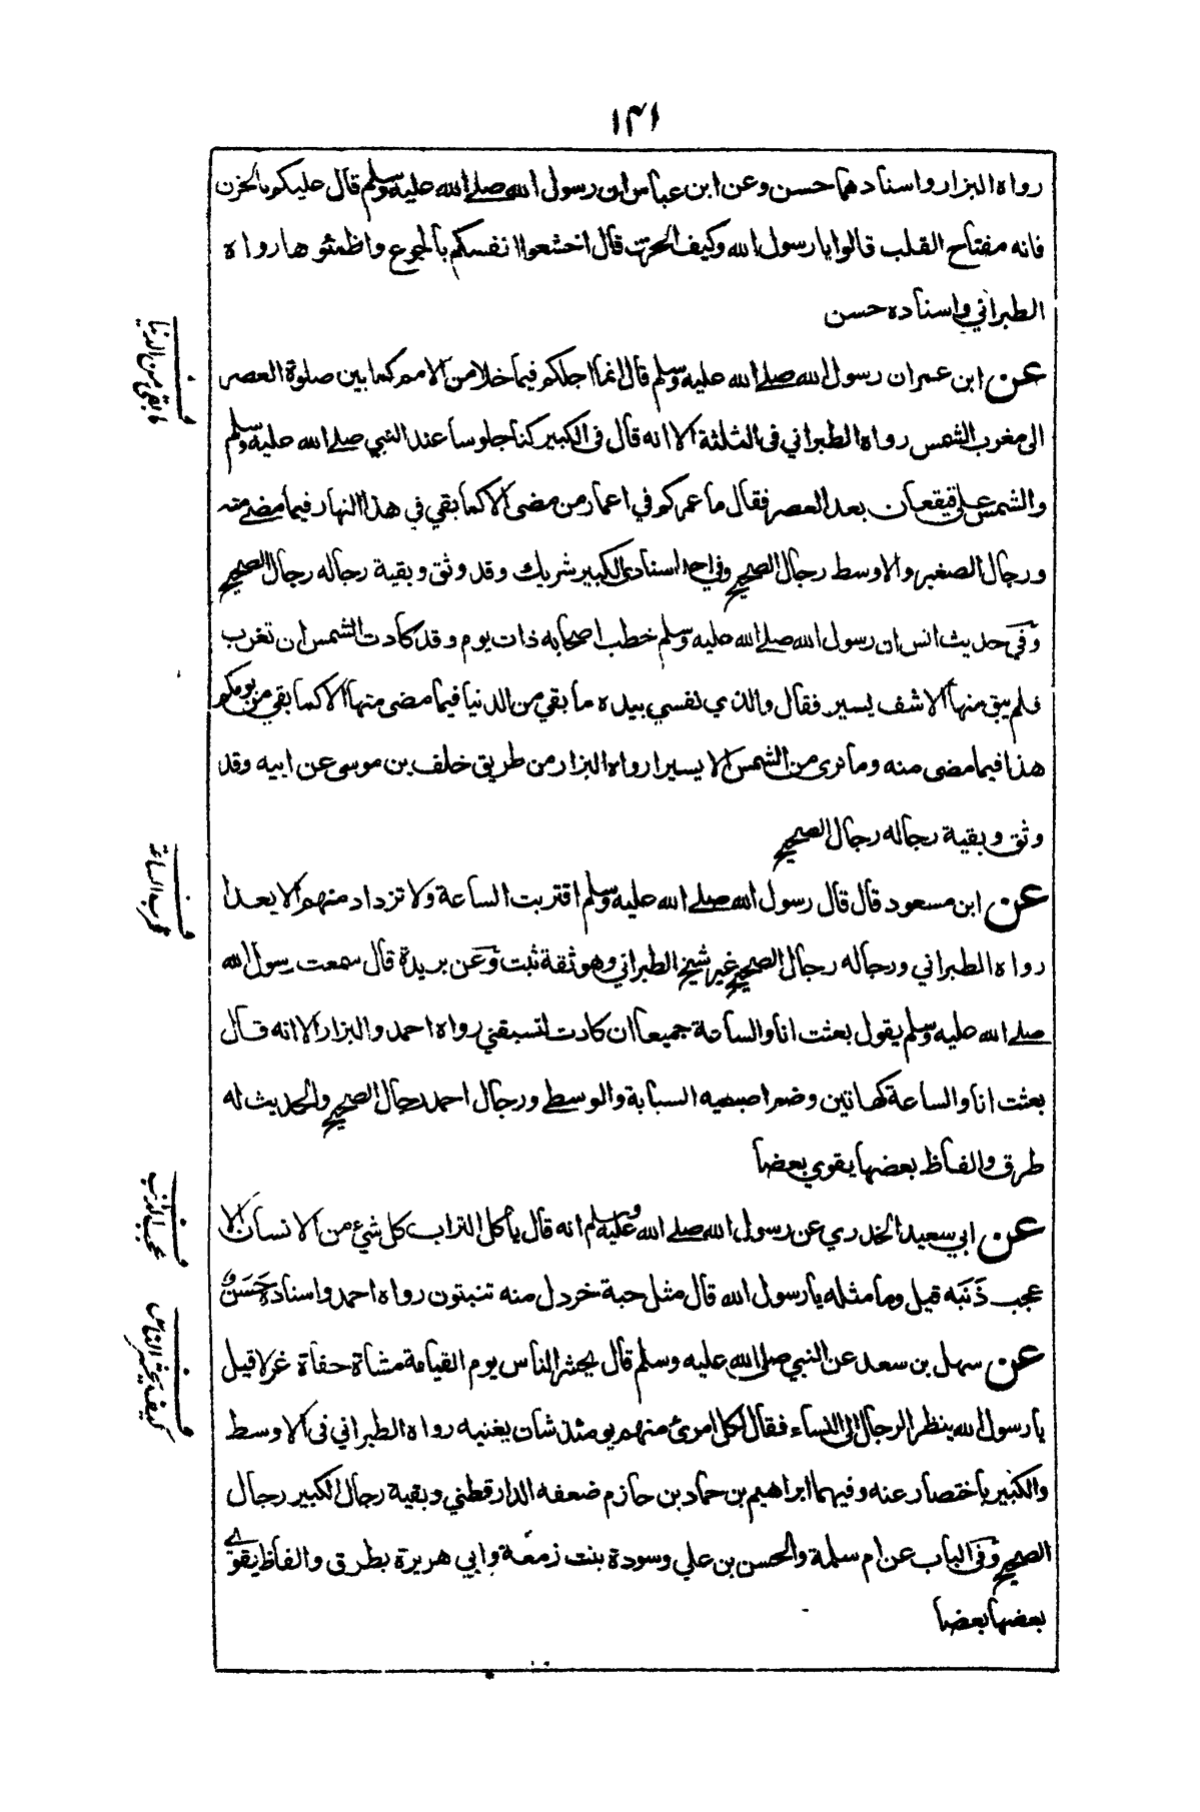 ١٣١
رواه البزار واسنادهما حسن وعن ابن عباس ان رسول الله صلى الله عليه وسلم قال عليكم بالحزن
فانه مفتاح القلب قالوا يا رسول الله وكيف الحزن قال اخشعوا انفسكم بالجوع واظمئوها رواه
الطبراني واسناده حسن
عن ابن عمر ان رسول الله صلى الله عليه وسلم قال انما اجلكم فيما خلا من الامم كما بين صلوة العصر
الى مغرب الشمس رواه الطبراني فى الثلثة الا انه قال فى الكبير كنا جلوسا عند النبي صلى الله عليه وسلم
والشمس على قيقعان بعد العصر فقال ما عمركم في اعمار من مضى الا كما بقي في هذا النهار فيما مضى منه
ورجال الصغير والاوسط رجال الصحيح وفي احد اسنادى الكبير شريك وقد وثق وبقية رجاله رجال الصحيح
وفي حديث انس ان رسول الله صلى الله عليه وسلم خطب اصحابه ذات يوم وقد كادت الشمس ان تغرب
فلم يبق منها الا شف يسير فقال والذي نفسي بيده ما بقي من الدنيا فيما مضى منها الا كما بقي من يومكم
هذا فيما مضى منه وما نرى من الشمس الا يسيرا رواه البزار من طريق خلف بن موسى عن ابيه وقد
وثق وبقية رجاله رجال الصحيح
عن ابن مسعود قال قال رسول الله صلى الله عليه وسلم اقتربت الساعة ولا تزداد منهم الا بعدا
رواه الطبراني ورجاله رجال الصحيح غير شيخ الطبراني وهو ثقة ثبت وعن بريدة قال سمعت رسول الله
صلى الله عليه وسلم يقول بعثت انا والساعة جميعا ان كادت لتسبقني رواه احمد والبزار الا انه قال
بعثت انا والساعة كهاتين وضم اصبعيه السبابة والوسطى ورجال احمد رجال الصحيح والحديث له
طرق والفاظ بعضها يقوي بعضا
عن ابي سعيد الخدري عن رسول الله صلى الله وعليه وسلم انه قال يأكل التراب كل شيء من الانسان الا
عجب ذَنَبه قيل وما مثله يا رسول الله قال مثل حبة خردل منه تنبتون رواه احمد واسناده حَسَنٌ
عن سهل بن سعد عن النبي صلى الله عليه وسلم قال يحشر الناس يوم القيامة مشاة حفاة غرلا قيل
يا رسول الله ينظر الرجال الى النساء فقال لكل امرئ منهم يومئذ شان يغنيه رواه الطبراني فى الاوسط
والكبير باختصار عنه وفيهما ابراهيم بن حماد بن حازم ضعفه الدارقطني وبقية رجال الكبير رجال
الصحيح وفى الباب عن ام سلمة والحسن بن علي وسودة بنت زمعة وابي هريرة بطرق والفاظ يقوي
بعضها بعضا
ما بقي من الدنيا
قرب الساعة
عجب الذنب
كيف يحشر الناس